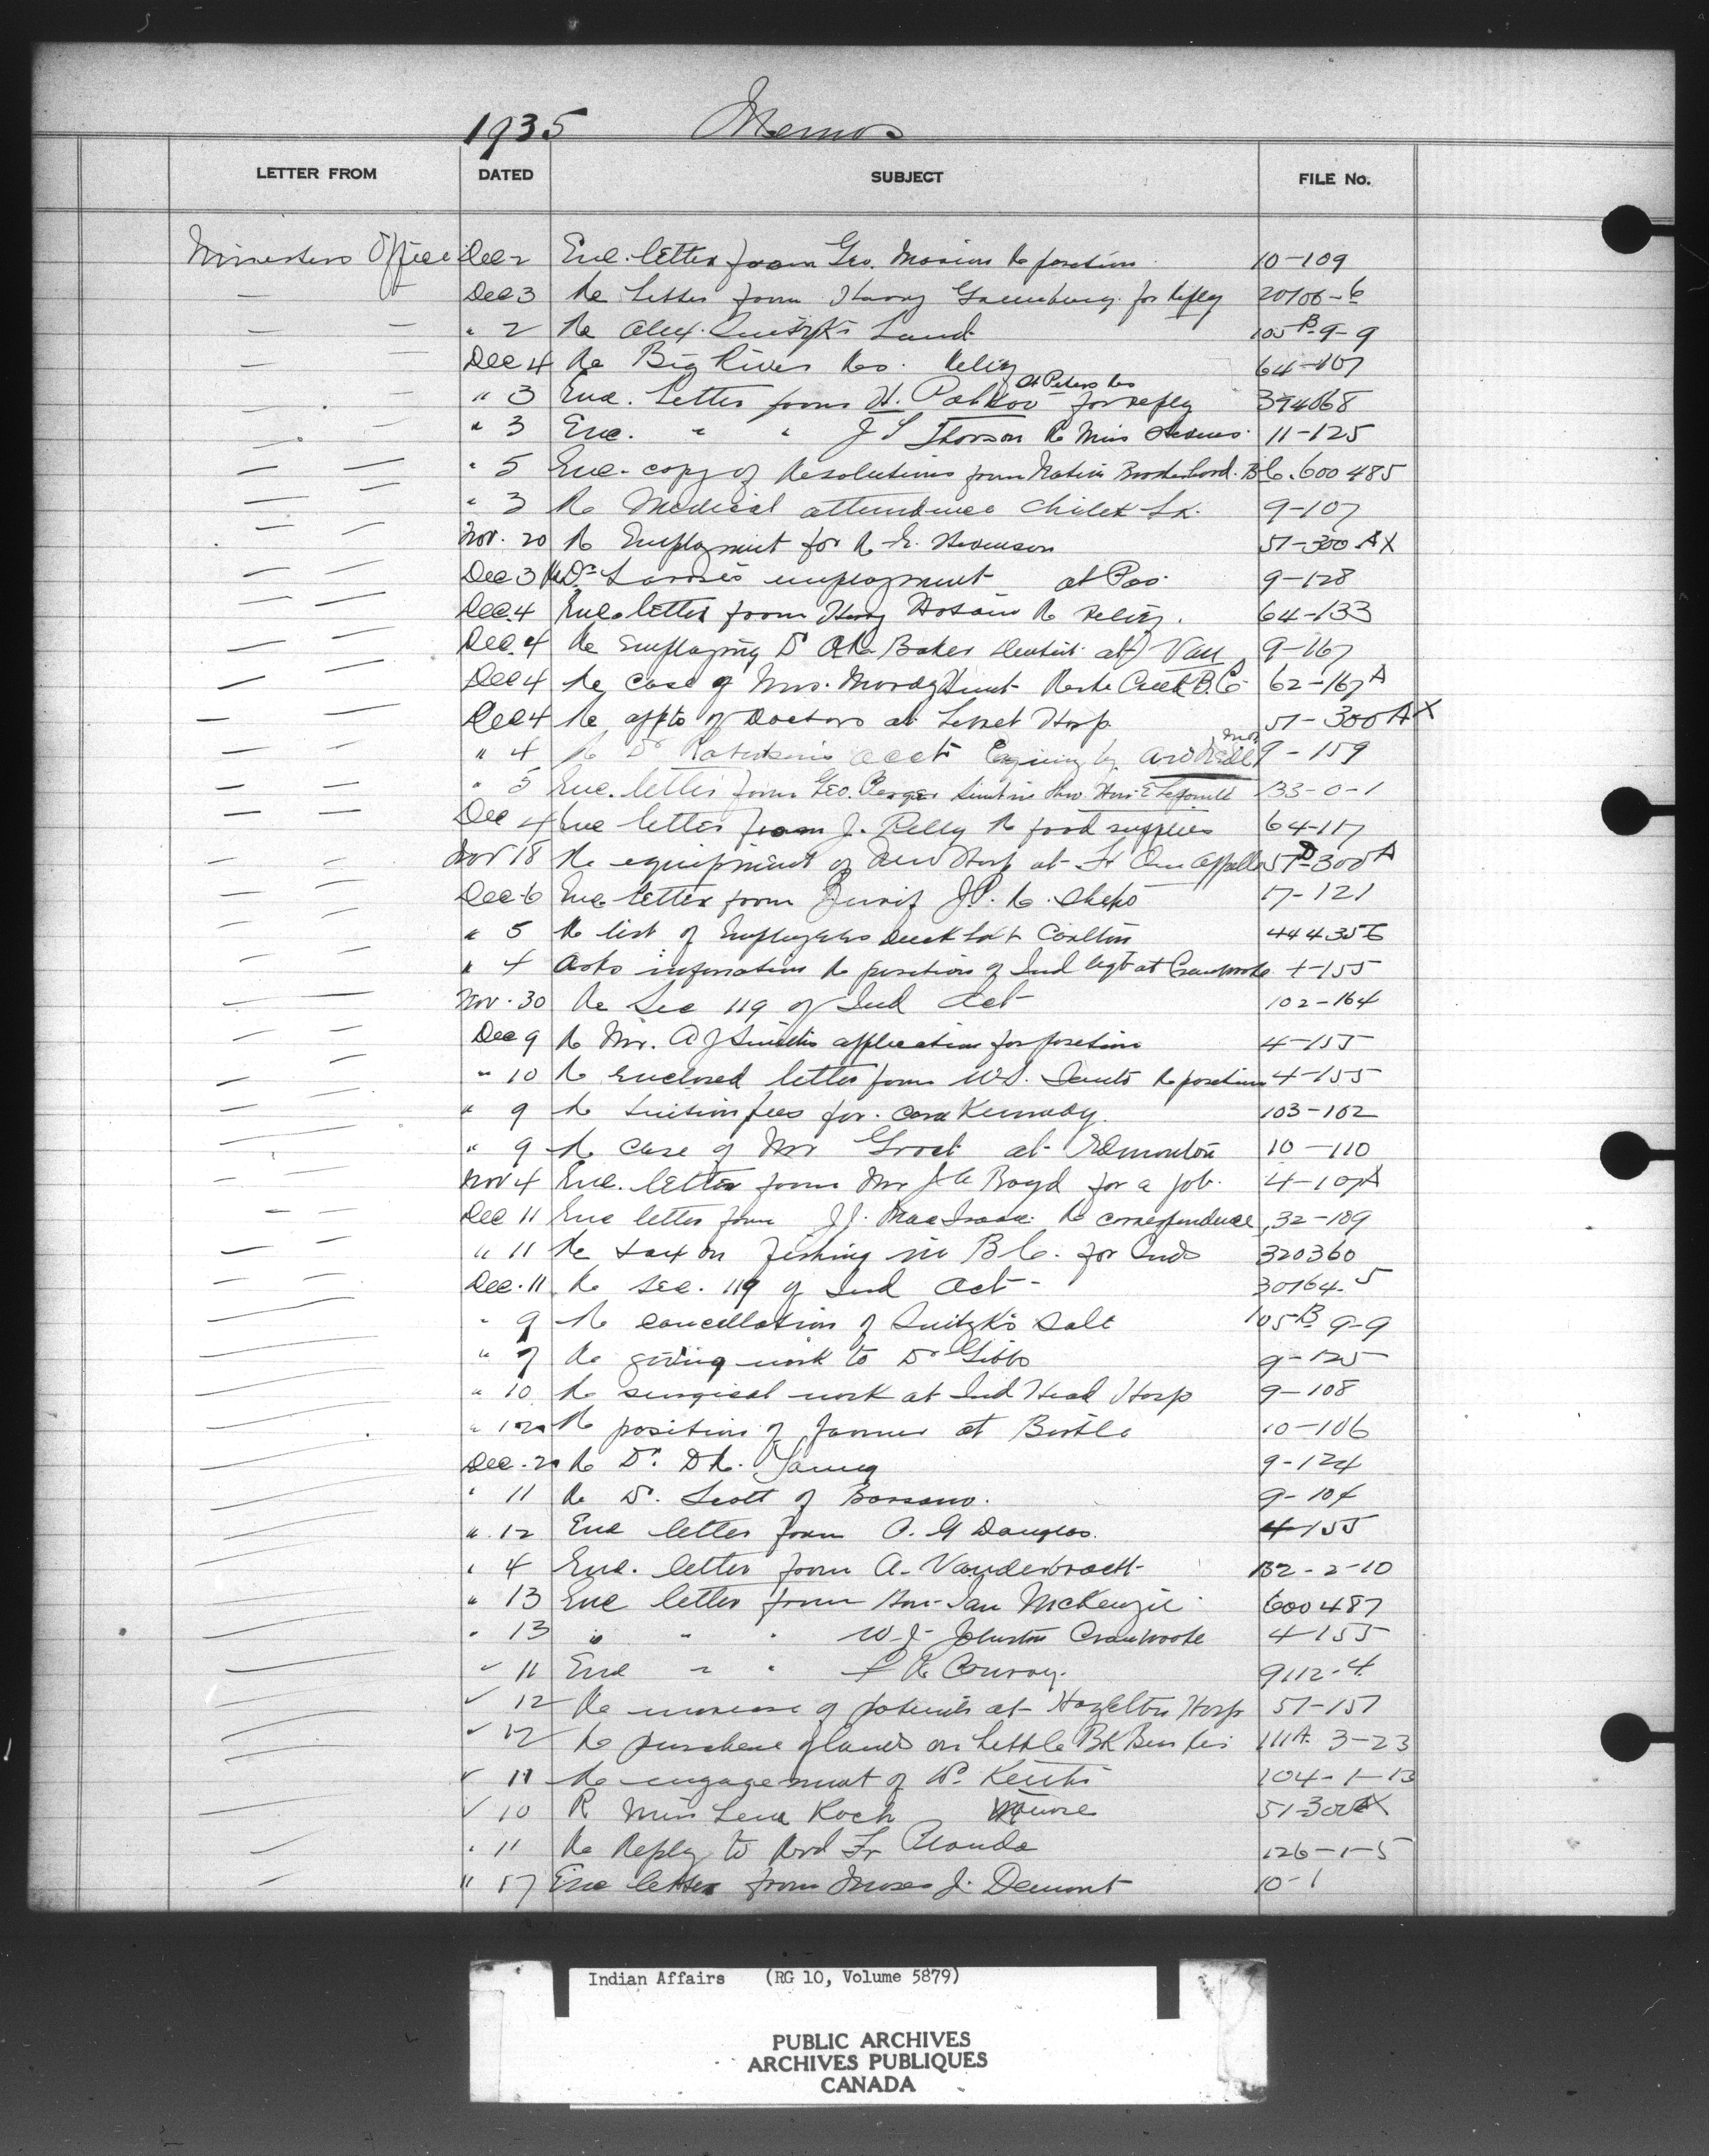 1935 Memos
LETTER FROM DATED SUBJECT FILE No.
Ministers Office Dec 2 Enc. letter from Geo. Morion Re position 10-109
Dec 3 Re letter from Harry for Reply 20706-6
" 2 Re Alex. Land 105 B-9-9
Dec 4 Re Big River Res. Relief 64-107
St Peters Res
" 3 Enc. Letter from H. for reply 394068
" 3 Enc. " " J T Thorson Re Miss 11-125
" 5 Enc. copy of Resolutions from Native Brotherhood. B.C. 600485
" 3 Re Medical attendance Lk. 9-107
Nov. 20 Re Employment for R. 51-300 AX
Dec 3 Re Dr employment at Pas. 9-128
Dec. 4 Enc letter from Re Relief. 64-133
Dec. 4 Re Employing Dr Baker Dentist at Van 9-167
Dec 4 Re case of Mrs. Creek B.C. 62-167 A
Dec 4 Re appts of Doctors at Hosp 51-300 AX
" 4 Re Dr acct 9-159
" 5 Enc. letter from Geo. 133-0-1
Dec 4 Enc letter from J. Relly Re food supplies 64-117
Nov 18 Re equipment of New Hosp at Ft Qu Appelle 57-300 A
Dec 6 Enc letter from J.P. Re. 17-121
" 5 Re list of Employees Duck Lk & Carlton 444356
" 4 Asks information Re position of Ind Agt at Cranbrook 4-155
Nov. 30 Re Sec 119 of Ind Act 102-164
Dec 9 Re Mr. A J Smiths application for position 4-155
" 10 Re enclosed letter from W.S. Re position 4-155
" 9 Re tuition fees for Cora Kennedy. 103-102
" 9 Re case of Mr Groat at Edmonton 10-110
Nov 4 Enc. letter from Mr J A Boyd for a job. 4-107A
Dec 11 Enc letter from J.J. MacIsaac Re correspondence 32-189
" 11 Re tax on fishing in B.C. for Inds 320360
Dec. 11 Re Sec. 119 of Ind Act- 30164-5
" 9 Re cancellation of Sale 105 B 9-9
" 7 Re giving work to Dr Gibbs 9-125
" 10 Re surgical work at Ind Head Hosp 9-108
" 12 Re position of Farmer at Birtle 10-106
Dec. 2 Re Dr. D R. Young 9-124
" 11 Re Dr. Scott of Bassano. 9-104
" 12 Enc letter from A. G Douglas. 4-155
" 4 Enc. letter from A. 132-2-10
" 13 Enc letter from Hon. Ian McKenzie 600487
" 13 " " " W. J. Johnston Cranbrook 4-155
" 11 Enc " " Conroy. 9112-4
" 12 Re increase of patients at Hazelton Hosp 51-157
" 12 Re purchase of lands on Little Bk Bear Res 111A 3-23
" 11 Re engagement of Dr. Keith 104-1-13
" 10 R Miss Lena Koch Nurse 51-300AX
" 11 Re Reply to Revd Fr 126-1-5
" 17 Enc letter from Moses J. Demont 10-1
Indian Affairs (RG 10, Volume 5879)
PUBLIC ARCHIVES
ARCHIVES PUBLIQUES
CANADA